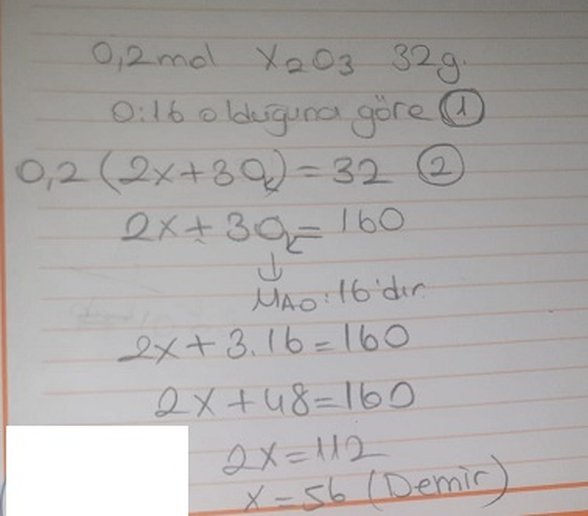 0,2 mol X2O3 32g.
O:16 olduğuna göre 1
0,2 (2x+3O) = 32 2
2x + 3O = 160
↓
MAO: 16'dır.
2x + 3.16 = 160
2x + 48 = 160
2x = 112
x = 56 (Demir)